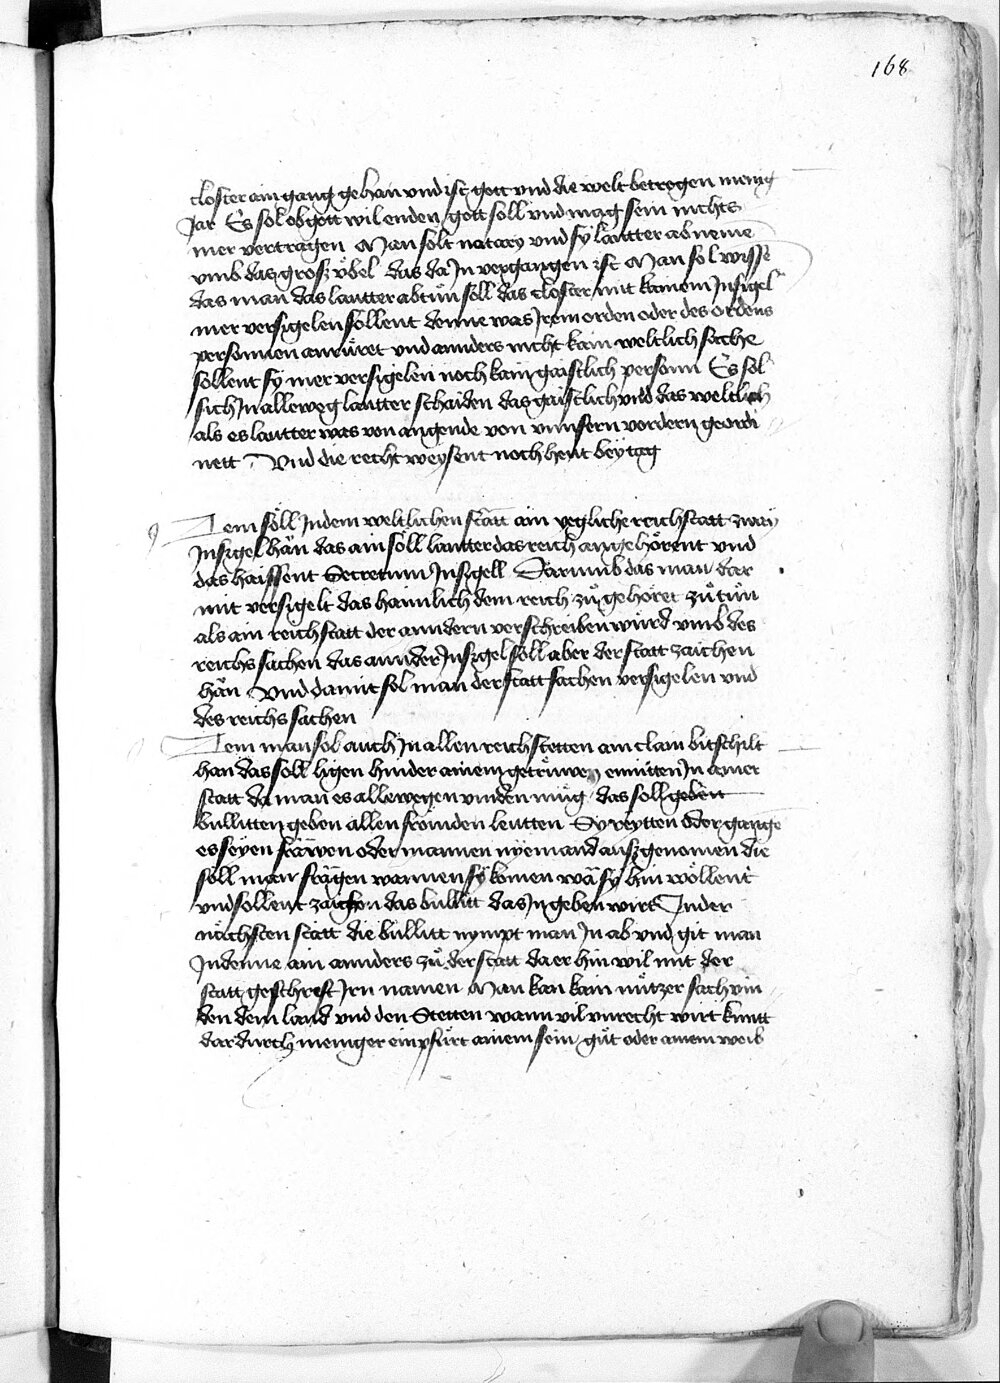 168
closter ain gang gehan vnd ist gott vnd die welt betrogen menig
Jar Es sol ob gott wil enden gott soll vnd mag sein nichts
mer vertragen Man solt notary vnd sy lautter ab neme
vmb das gross v̈bel das da Jn vergangen ist Man sol wisse
das man das lautter abtůn soll das closter mit kainem Jnsigel
mer versigelen sollent denne was Jrem orden oder des ordens
personnen anrüret vnd annders nicht kain weltlich sache
sollent sy mer versigelen noch kain gaistlich personn Es sol
sich Jn alleweg lautter schaiden das gaistlich vnd das weltlich
als es lautter was von angende von vnnsern vordern geordi
nett Vnd die recht weysent noch heut bey tag
Item söll Jn dem weltlichen statt ain yegliche reichstatt zway
Jnsigel hän das ain soll lautter das reich angehörent vnd
das haissent Secretum Jnsigell Darumb das man dar
mit versigelt das haimlich dem reich zů gehöret zů tůn
als ain reichstatt der anndern verschreiben würd vmb des
reichs sachen das annder Jnsigel soll aber der statt zaichen
hän Vnd damit sol man der statt sachen versigelen vnd
des reichs sachen
Item man sol auch Jn allen reichstetten ain clain bitschilt
han das soll ligen hinder ainem getrüwen enmitten Jn ainer
statt da man es allewegen vinden müg das soll geben
bullitten geben allen frömden leutten Sy reytten oder gange
es seyen fräwen oder mannen nyemand aussgenomen die
soll man frägen wannen sy komen wä sy hin wöllent
vnd sollent zaichen das bullitt das Jn geben wirt Jn der
nächsten statt die bullitt nympt man Jn ab vnd git man
Jn denne ain annders zů der statt da er hin wil mit der
statt geschrift Jrn namen Man kan kain nützer sach vin
den dem land vnd den Stetten wann vil vnrecht wirt kuntt
dardurch meniger empfürt ainem sein gůt oder ainem weib